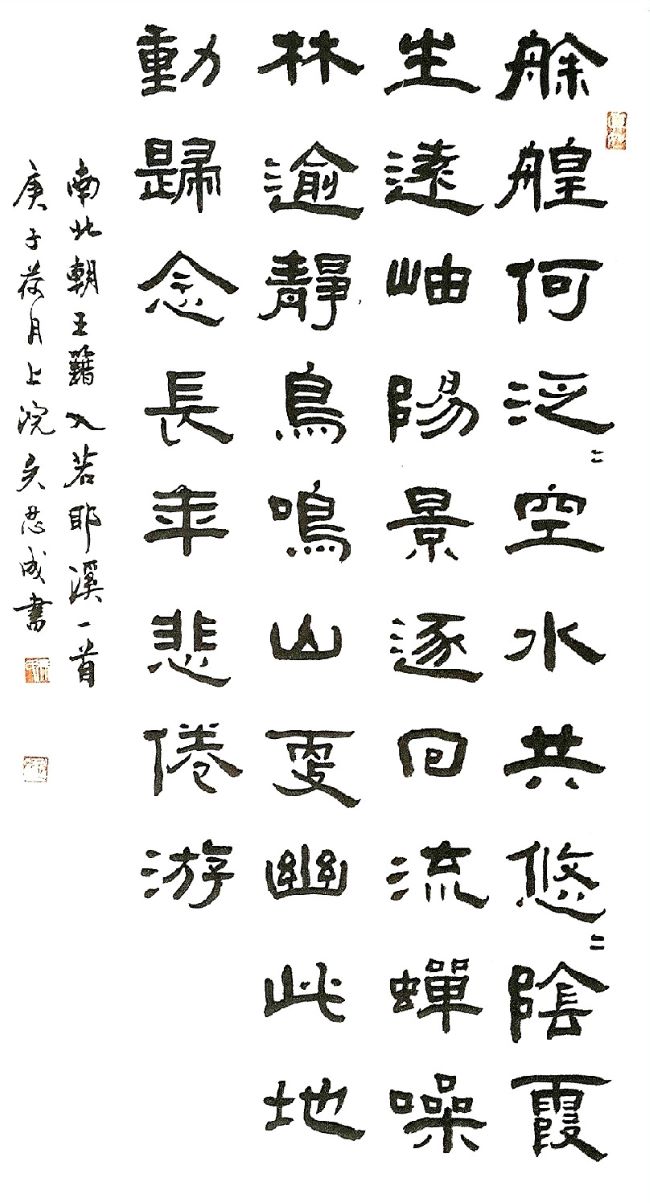 艅艎何泛〻空水共悠〻陰霞
生遠岫陽景逐回流蟬噪
林逾靜鳥鳴山更幽此地
動歸念長年悲倦游
南北朝王籍入若耶溪一首
庚子荷月上浣吳忍成書